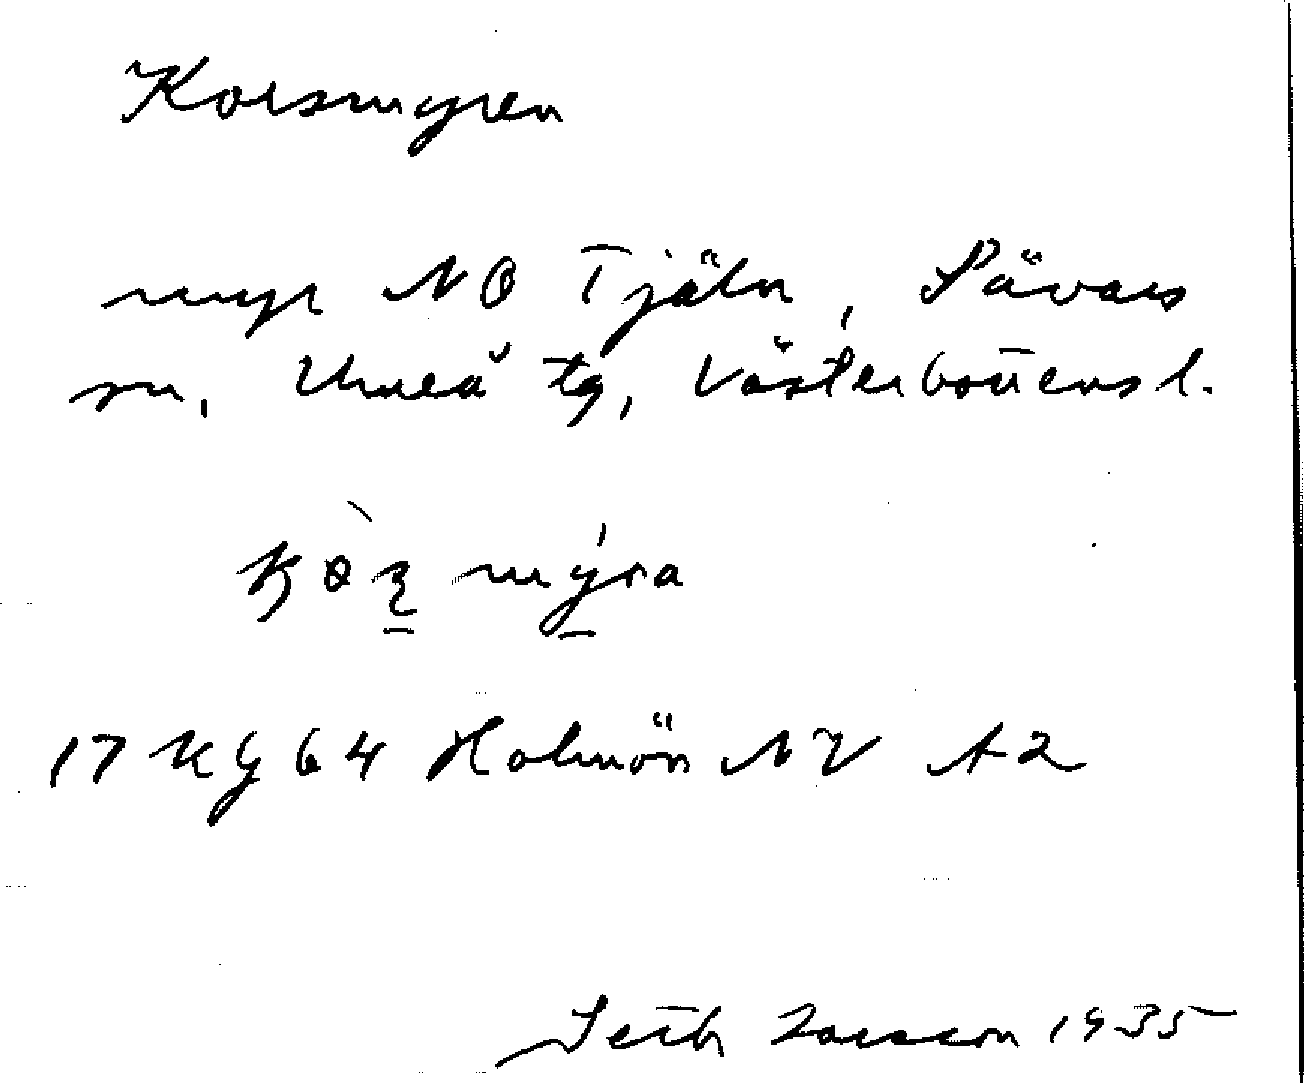 Korsmyren
myr NO Tjäln, Sävars
sn, Umeå tg, Västerbottens l.
mýra
17 KG 64 Holmön NV A2
Seth Larsson 1935